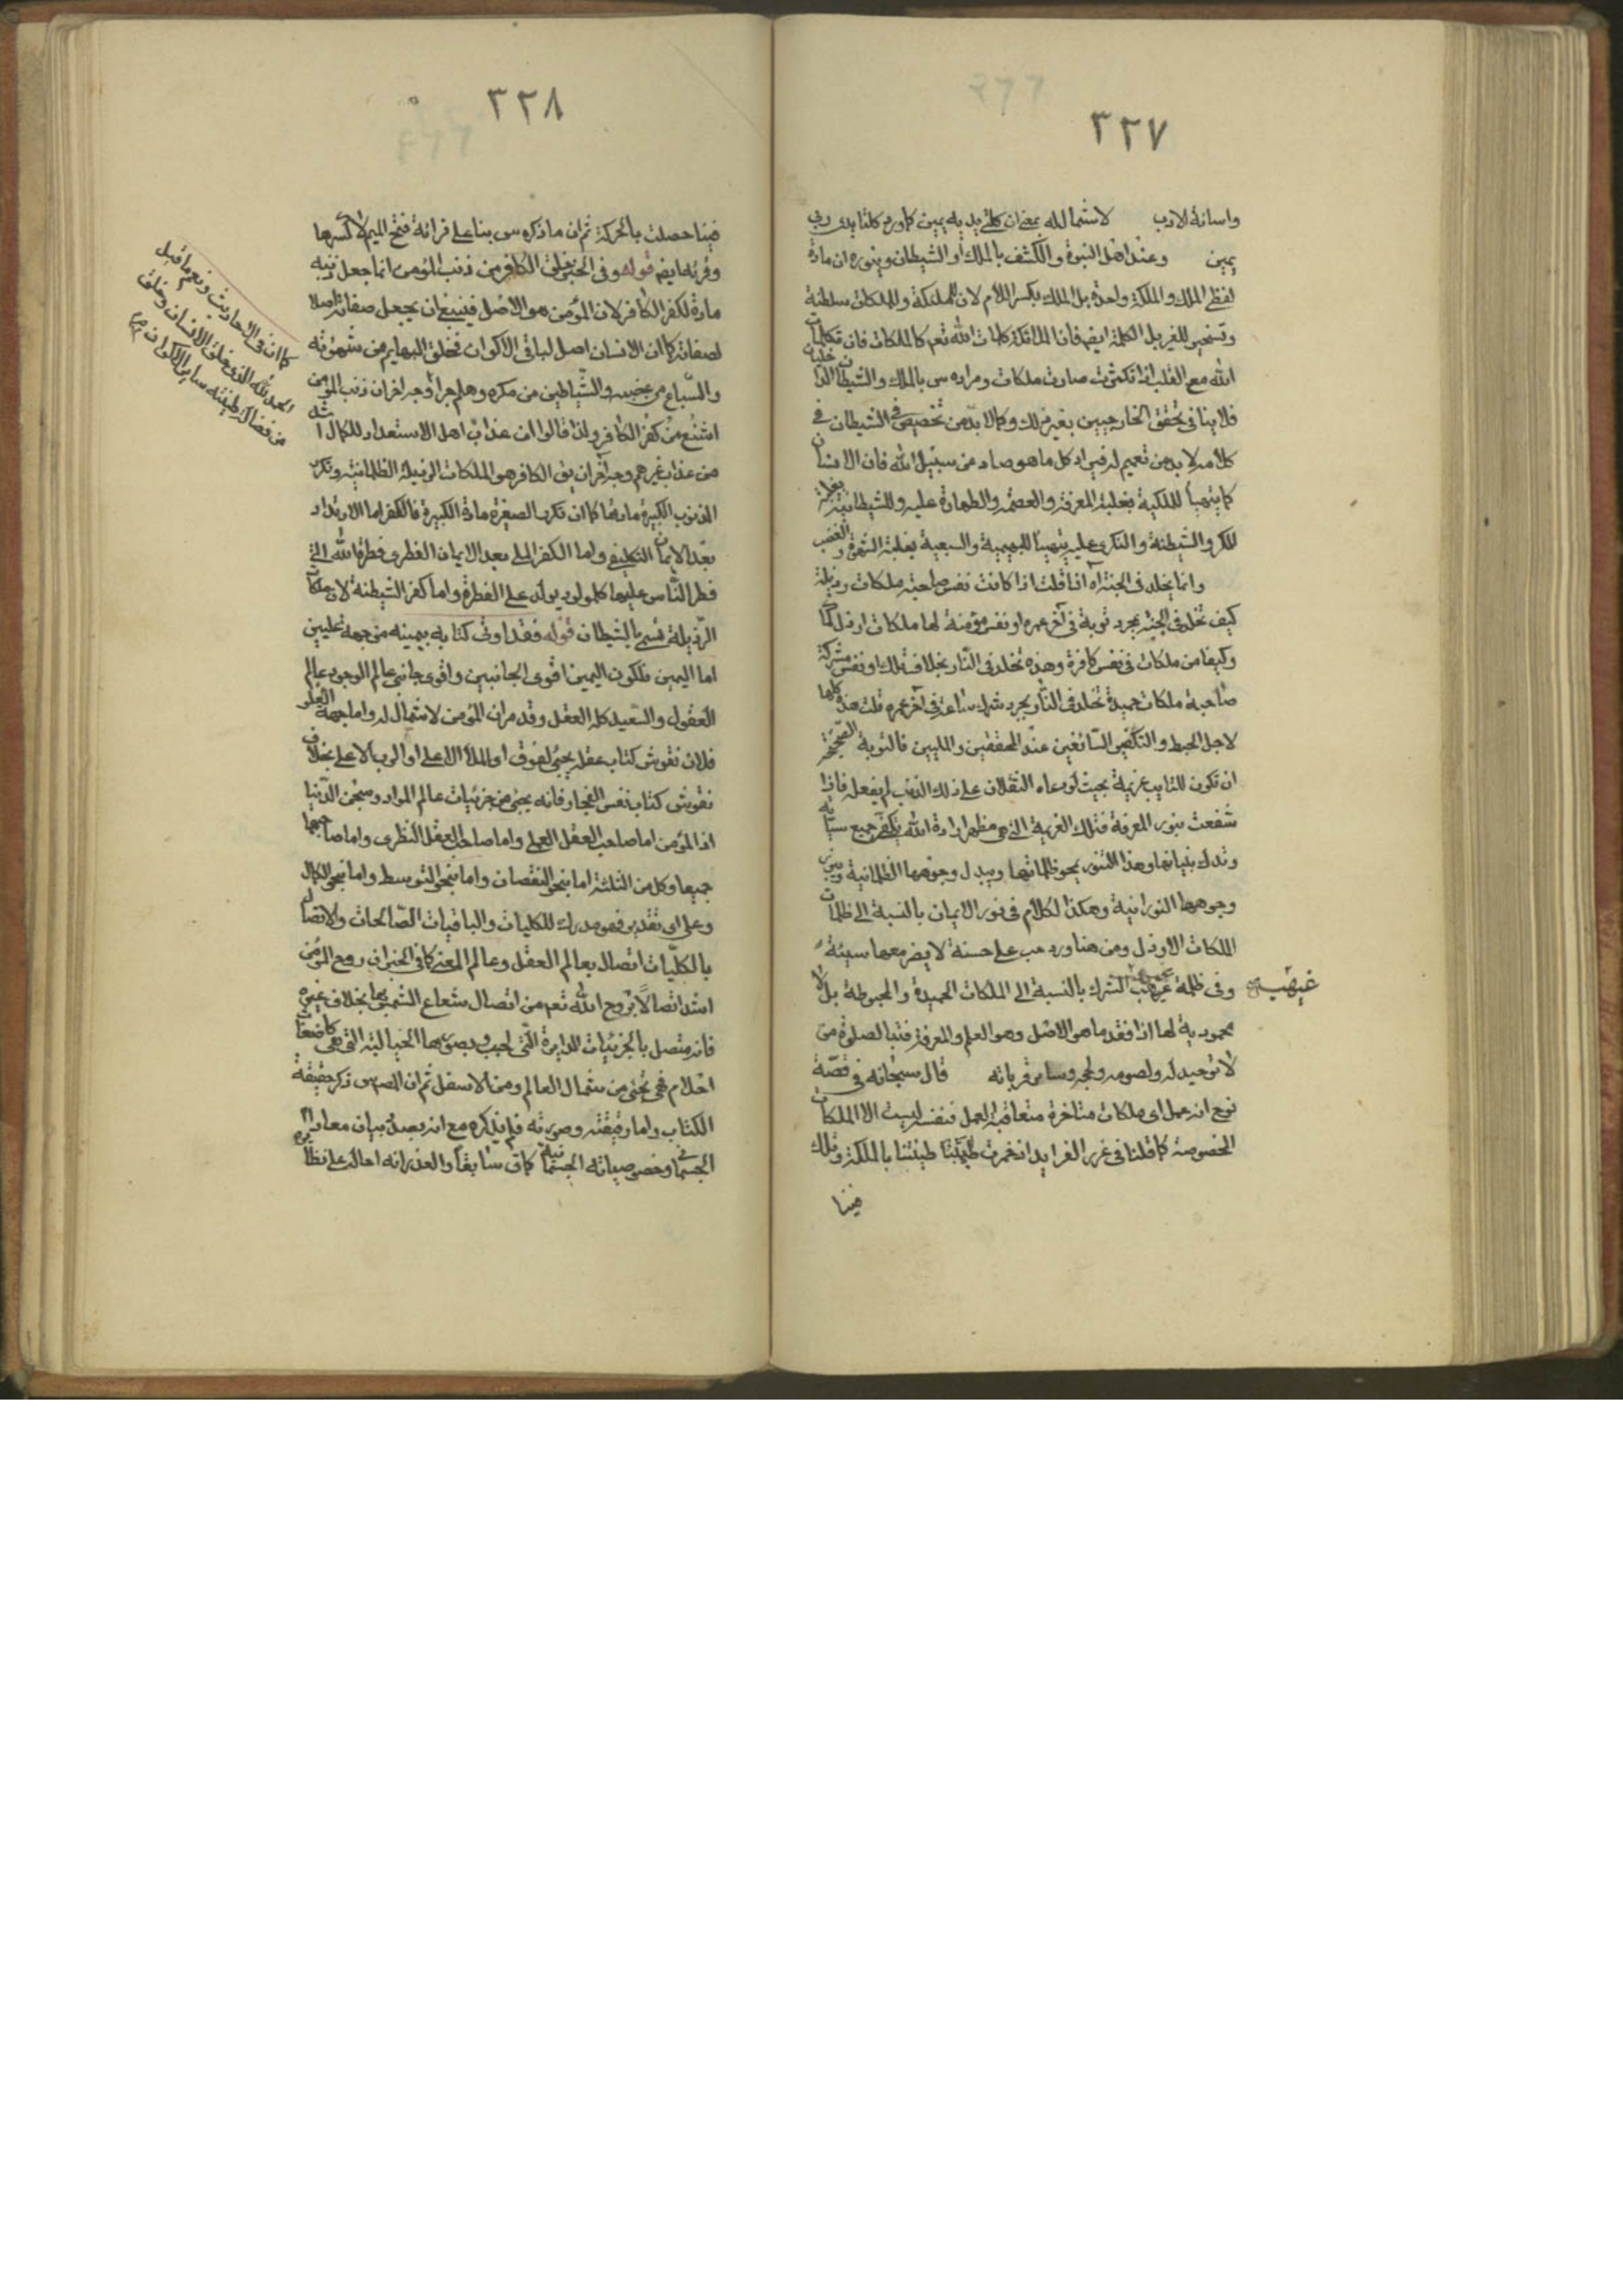 ٣٢٧
واسائة الادب لا شمال له بمعنى ان كلتى يديه يمين كما ورد كلتا يدى ربى
يمين وعند اهل النبوة والكشف بالملك او الشيطان وينوره ان مادة
لفظ الملك والملكة واحدة بل الملك بكسر اللام لان للملئكة وللملكات سلطنة
وتسخير للغير بل الكلمة ايضا فان الملائكة كلمات الله تعم كالملكات فان تكلمات
الله مع القلب اذا تكثرت صارت ملكات ومراده س بالملك والشيطان الداخليان
فلا ينافى تحقق الخارجيين بغير ذلك وكما لا بد من تخصيص فى الشيطان فى
كلامه لا بد من تعميم له فيراد كل ما هو صاد من سبيل الله فان الانسان
كما يتهيأ للملكية بغلبة المعرفة والعصمة والطهارة عليه وللشيطانية بغلبة
المكر والشيطنة والنكرى عليه يتهيأ للبهيمية والسبعية بغلبة الشهوة والغضب
وانما يخلد فى الجنة آه اذا قلت اذا كانت نفس صاحبة ملكات رذيلة
كيف تخلد فى الجنة بمجرد توبة فى آخر عمره او نفس مؤمنة لها ملكات ارذل كما
وكيفا من ملكات فى نفس كافرة وهذه تخلد فى النار بخلاف تلك او نفس مشركة
صاحبة ملكات حميدة تخلد فى النار بمجرد شرك ساعة فى آخر عمره قلت هذه كلها
لاجل الحبط والتكفير السائغين عند المحققين والمليين فالتوبة الصحيحة
ان تكون للتايب عزيمة بحيث لو دعاه الثقلان على ذلك الذنب لم يفعله فاذا
شفعت بنور المعرفة فتلك العزيمة التى هى مظهر ارادة الله يكفر جميع سيآته
وتدك بنيانها وهذا التنور يمحو ظلماتها ويبدل وجوهها الظلمانية
وجوهها النورانية وهكذا الكلام فى نور الايمان بالنسبة الى ظلمات
الملكات الارذل ومن هنا ورد حب على حسنة لا يضر معها سيئة
وفى ظلمة غيهب الشرك بالنسبة الى الملكات الحميدة والمحبوطة بل لا
محمودية لها اذا فقد ما هو الاصل وهو العلم والمعرفة فتبا لصلوة من
لا توحيد له ولصومه ولحجه وسائر قرباته قال سبحانه فى قصة
نوح انه عمل اى ملكات متأخرة متعاقبة العمل فنفسه ليست الا الملكات
المخصوصة كما قلنا فى غرر الفرايد انخمرت طينتنا بالملكة وتلك
فينا
غيهب
٣٢٨
فينا حصلت بالحركة ثم ان ما ذكره س بناء على قرائة فتح الميم لا كسرها
وقرئ ايضا قوله وفى الخبر خلق الكافر من ذنب المؤمن انما جعل ذنبه
مادة لكفر الكافر لان المؤمن هو الاصل فينبغى ان يجعل صفاته اصلا
لصفاته كما ان الانسان اصل لباقى الاكوان فخلق البهايم من شهوته
والسباع من غضبه والشياطين من مكره وهلم جرا وجه آخر ان ذنب المؤمن
اشنع من كفر الكافر ولذا قالوا ان عذاب اهل الاستعداد للكمال اشد
من عذاب غيرهم وجه آخر ان يق الكافر هو الملكات الرذيلة الظلمانية وتكرر
الذنوب الكبيرة مادتها كما ان تكرر الصغيرة مادة الكبيرة فالكفر اما الارتداد
بعد الايمان التكليفى واما الكفر الملى بعد الايمان الفطرى فطرة الله التى
فطر الناس عليها كل مولود يولد على الفطرة واما كفر الشيطنة لان ملكات
الرذيلة تسمى بالشيطان قوله فقد اوتى كتابه بيمينه من جهة عليين
اما اليمين فلكون اليمين اقوى الجانبين واقوى جانبى عالم الوجود عالم
العقول والسعيد كله العقل وقد مر ان المؤمن لا شمال له واما جهة العلو
فلان نقوش كتاب عقله يجئ من فوق او الملأ الاعلى او الرب الاعلى بخلاف
نقوش كتاب نفس الفجار فانه يجئ من جزئيات عالم المواد وسجن الدنيا
اذ المؤمن اما صاحب العقل العملى واما صاحب العقل النظرى واما صاحبهما
جميعا وكل من الثلثة اما بنحو النقصان واما بنحو التوسط واما بنحو الكمال
وعلى اى تقدير فهو مدرك للكليات والباقيات الصالحات والاتصال
بالكليات اتصال بعالم العقل وعالم المعنى كما فى الخبر ان روح المؤمن
اشد اتصالا بروح الله تعم من اتصال شعاع الشمس بها بخلاف غيره
فانه متصل بالجزئيات الدايرة التى احب وبصورها الخيالية التى هى كاضغاث
احلام فهى تجئ من شمال العالم ومن الاسفل ثم ان المص س ذكر حقيقة
الكتاب واما رقيقته وصورته فلم يذكره مع انه بصدد بيان معاد
الجسمانى وخصوصياته الجسمانية كما فى سابقا والعذر انه احاله على نظايره
كما ان فى الاحاديث ونعم ما قيل
الحمد لله الذى خلق الانسان وخلق
من فضالة طينته سائر الاكوان منه